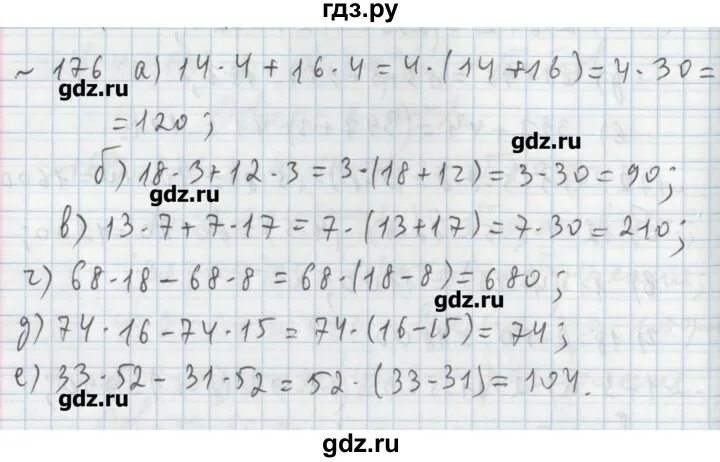 гдз.ру
~ 176 а) 14·4+16·4=4·(14+16)=4·30=
gdz.ru
=120;
gdz.ru
б) 18·3+12·3=3·(18+12)=3·30=90;
gdz.ru
в) 13·7+7·17=7·(13+17)=7·30=210;
г) 68·18-68·8=68·(18-8)=680;
gdz.ru
д) 74·16-74·15=74·(16-15)=74;
е) 33·52-31·52=52·(33-31)=104.
gdz.ru
gdz.ru